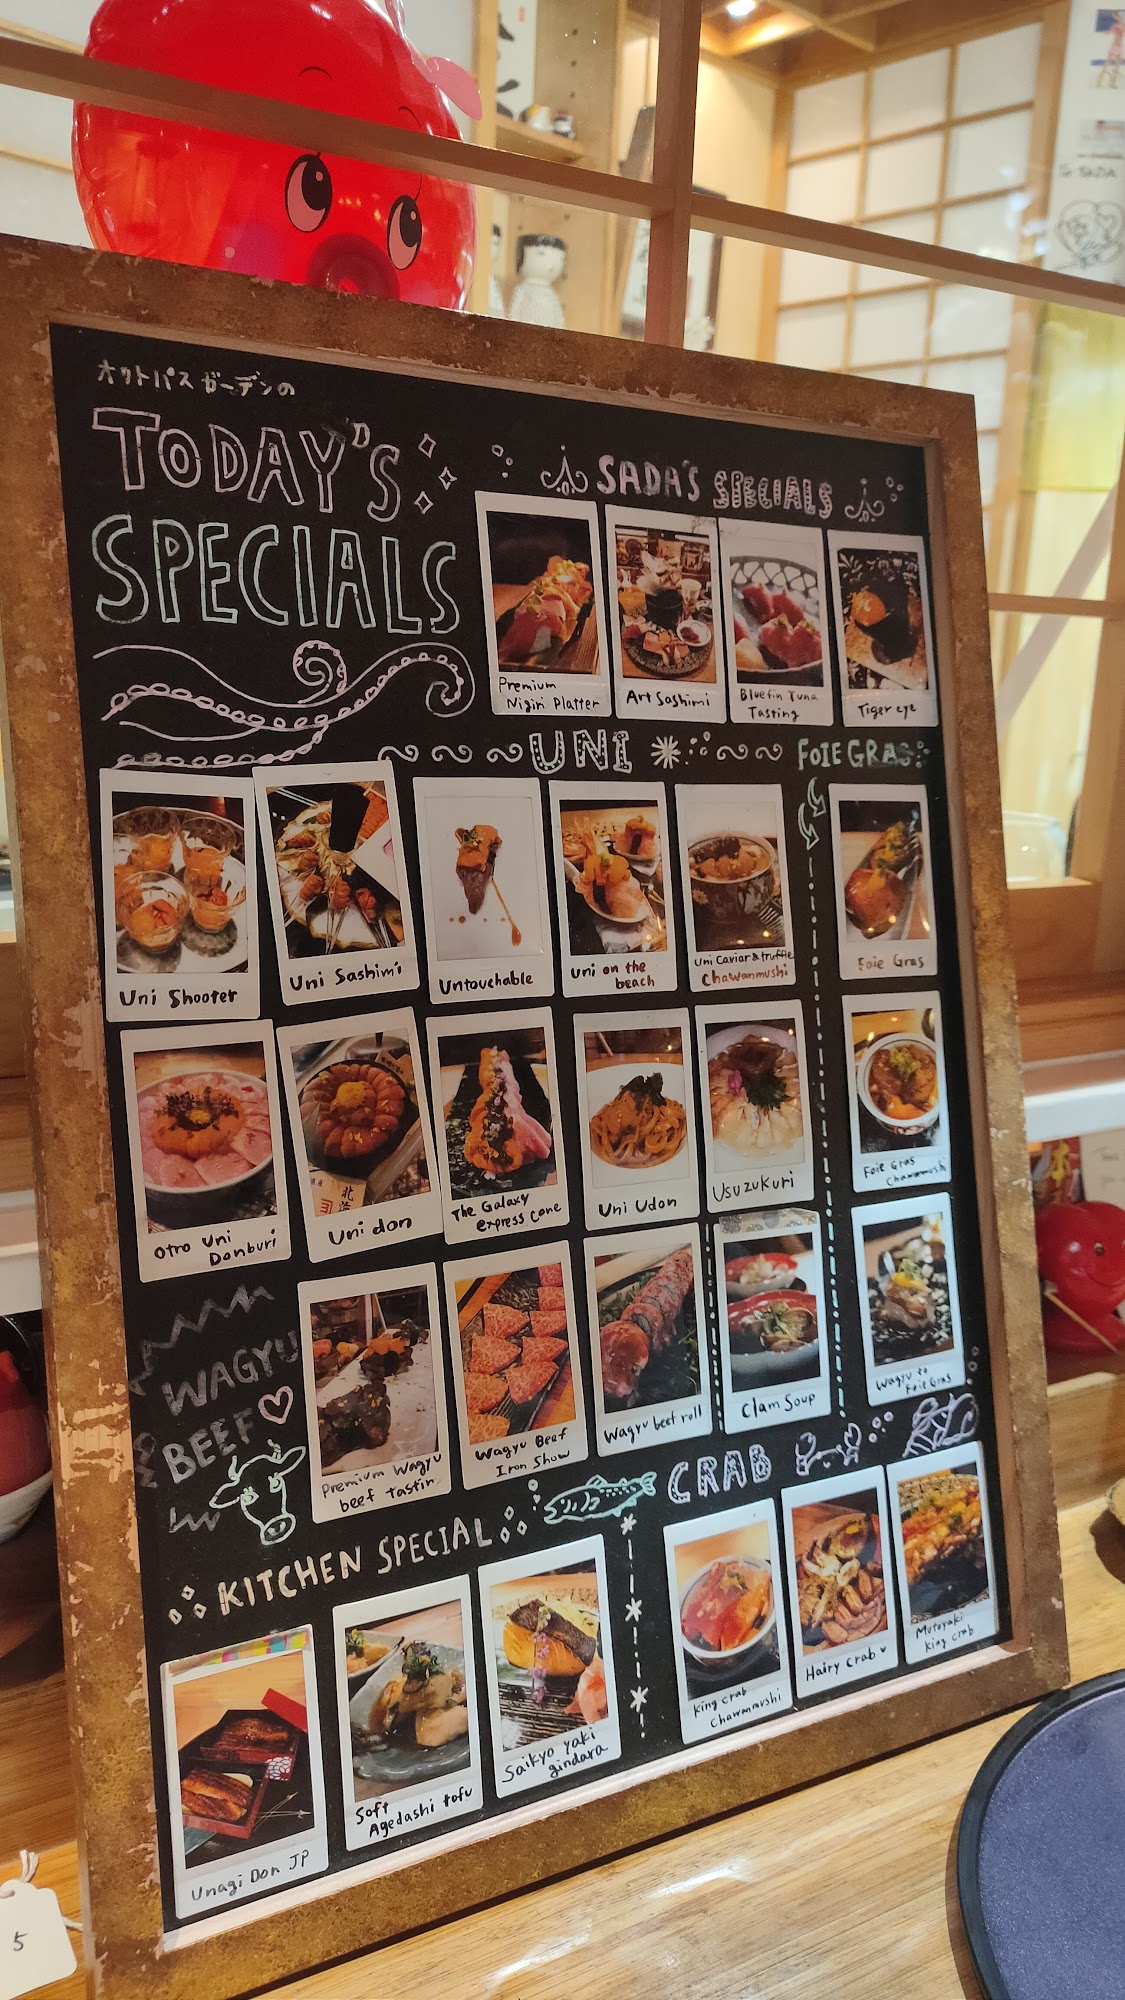 オクトパス ガーデンの
TODAY'S
SPECIALS
SADA'S SPECIALS
Premium
Nigiri Platter
Art Sashimi
Bluefin Tuna
Tasting
Tiger eye
UNI
FOIE GRAS
Uni Shooter
Uni Sashimi
Untouchable
Uni on the
beach
Uni Caviar & truffle
Chawanmushi
Foie Gras
Otro Uni
Donburi
Uni don
The Galaxy
express cone
Uni Udon
Usuzukuri
Foie Gras
Chawanmushi
WAGYU
BEEF
Premium Wagyu
beef tasting
Wagyu Beef
Iron Show
Wagyu beef roll
Clam Soup
Wagyu to
Foie Gras
KITCHEN SPECIAL
CRAB
Unagi Don JP
Soft
Agedashi tofu
Saikyo yaki
gindara
King crab
Chawanmushi
Hairy Crab
Motoyaki
King crab
To SADA
5